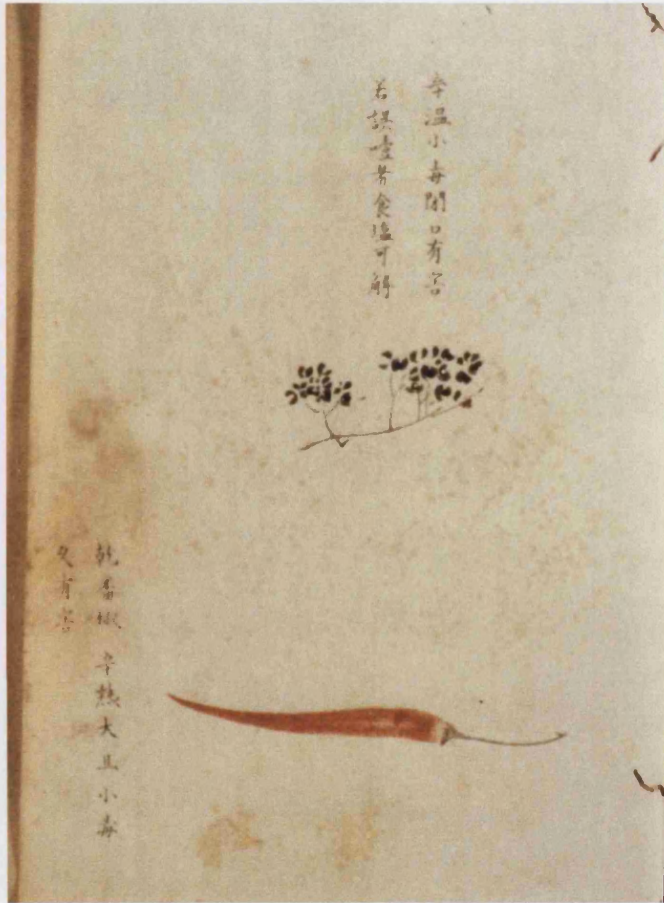 辛温小毒閉口有害
若誤噎者食塩可解
乾番椒 辛熱大且小毒
久有害